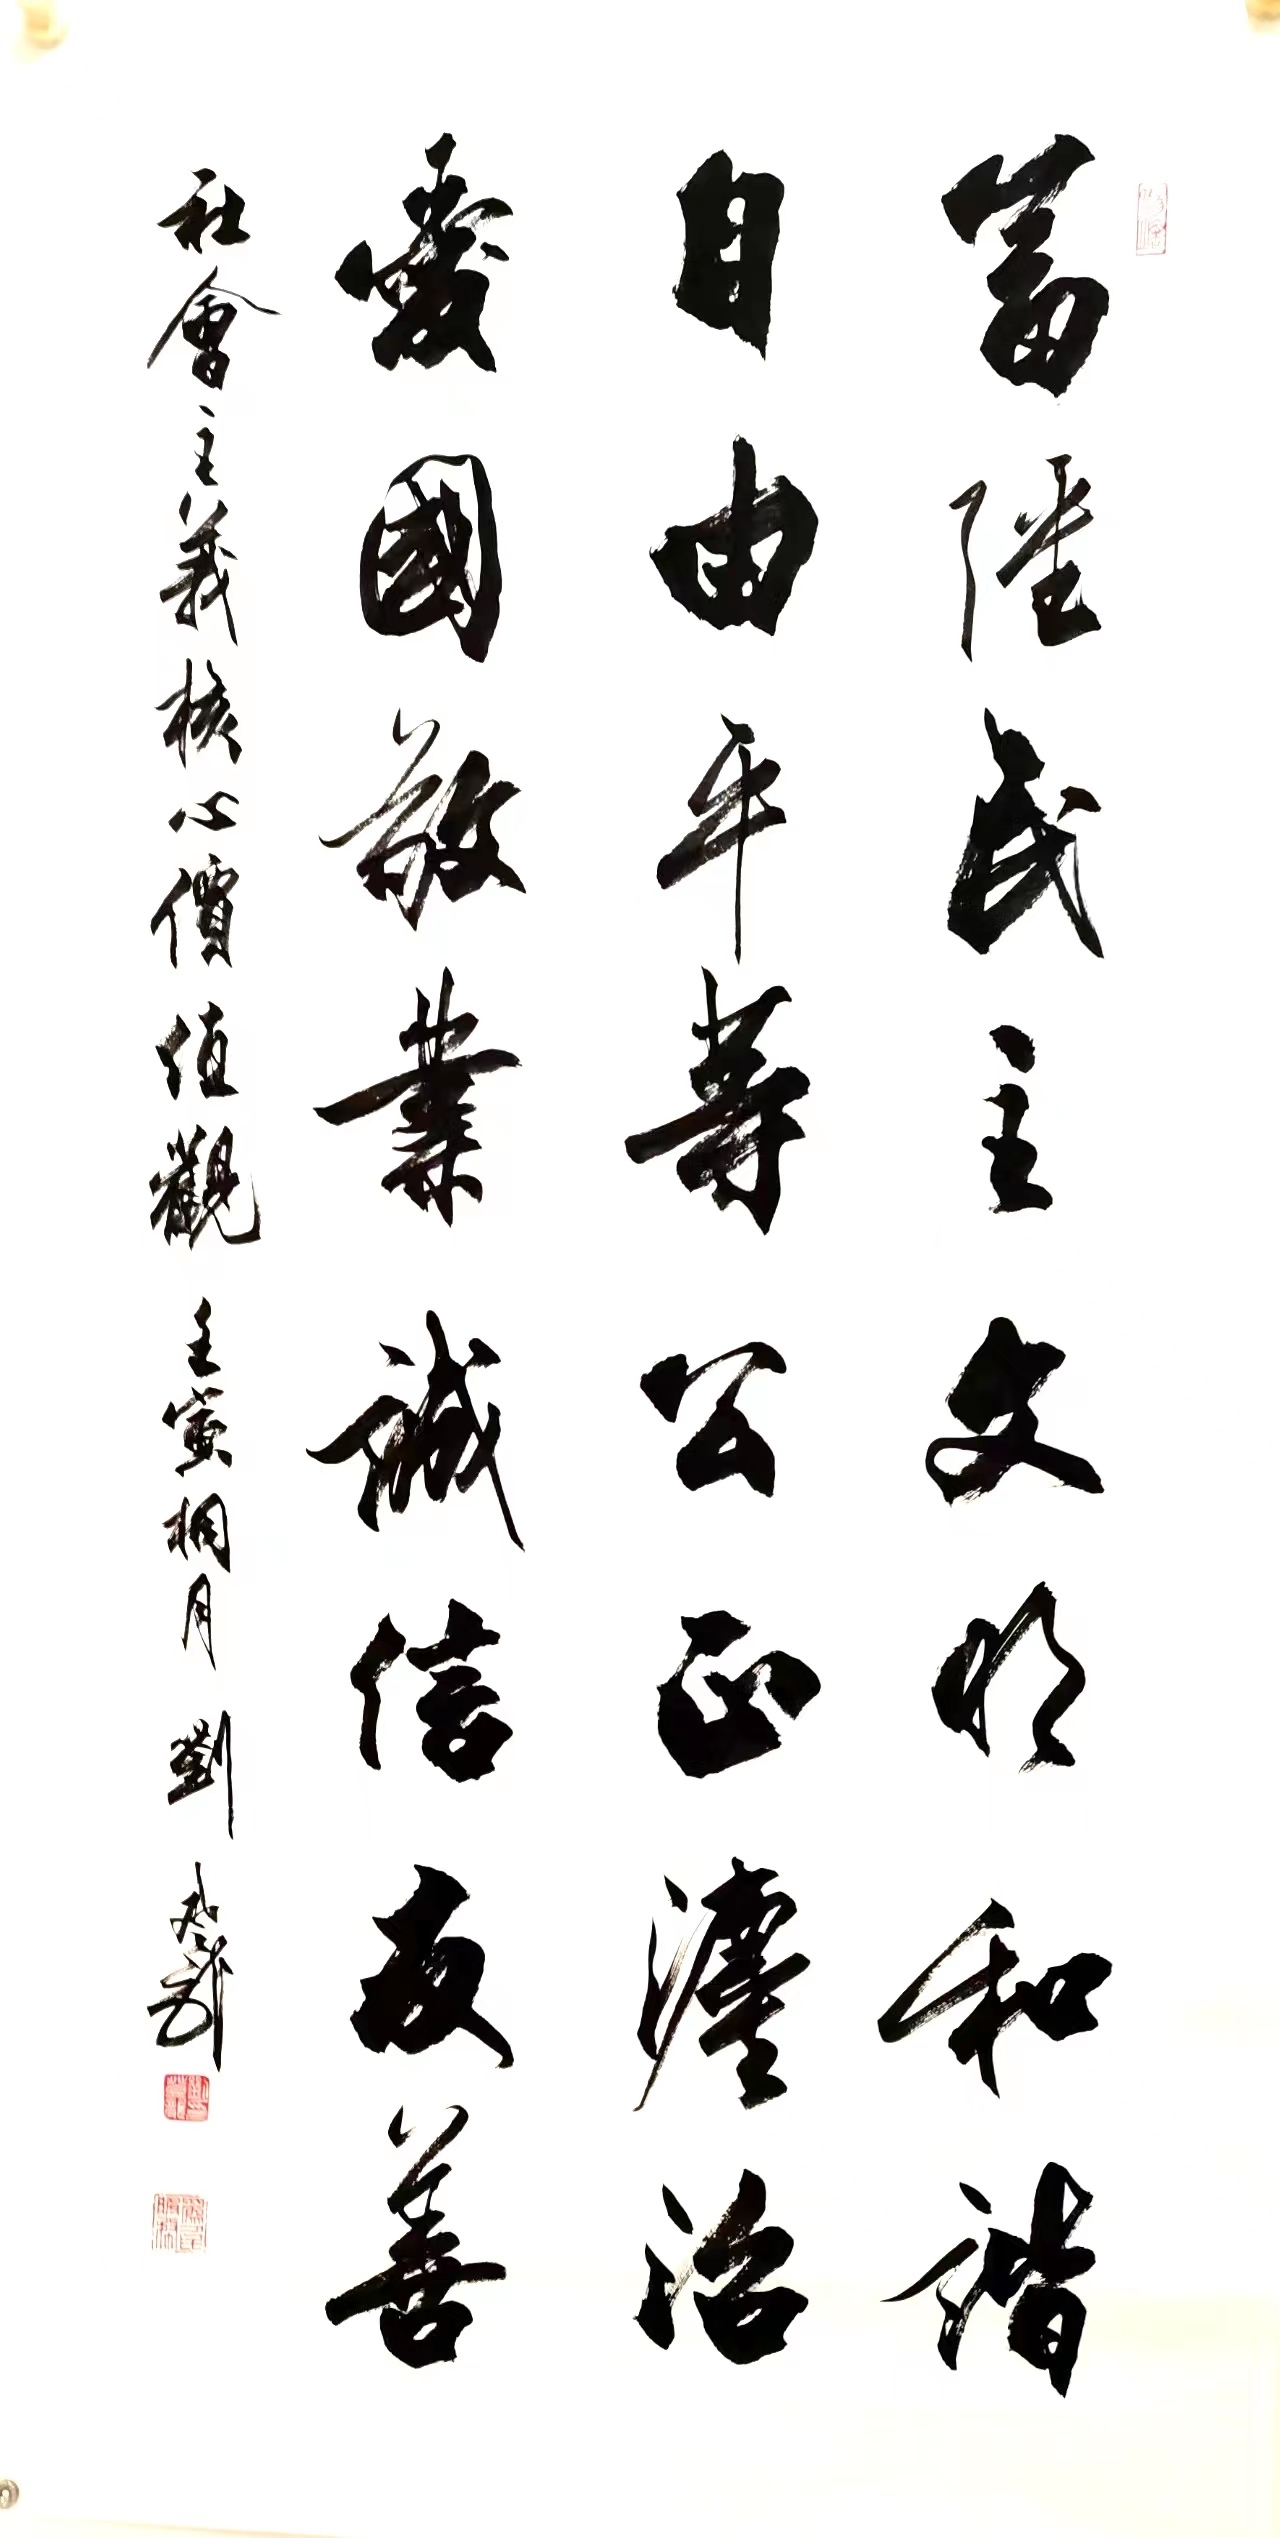 富強民主文明和諧
自由平等公正灋治
愛國敬業誠信友善
社會主義核心價值觀 壬寅桐月 劉